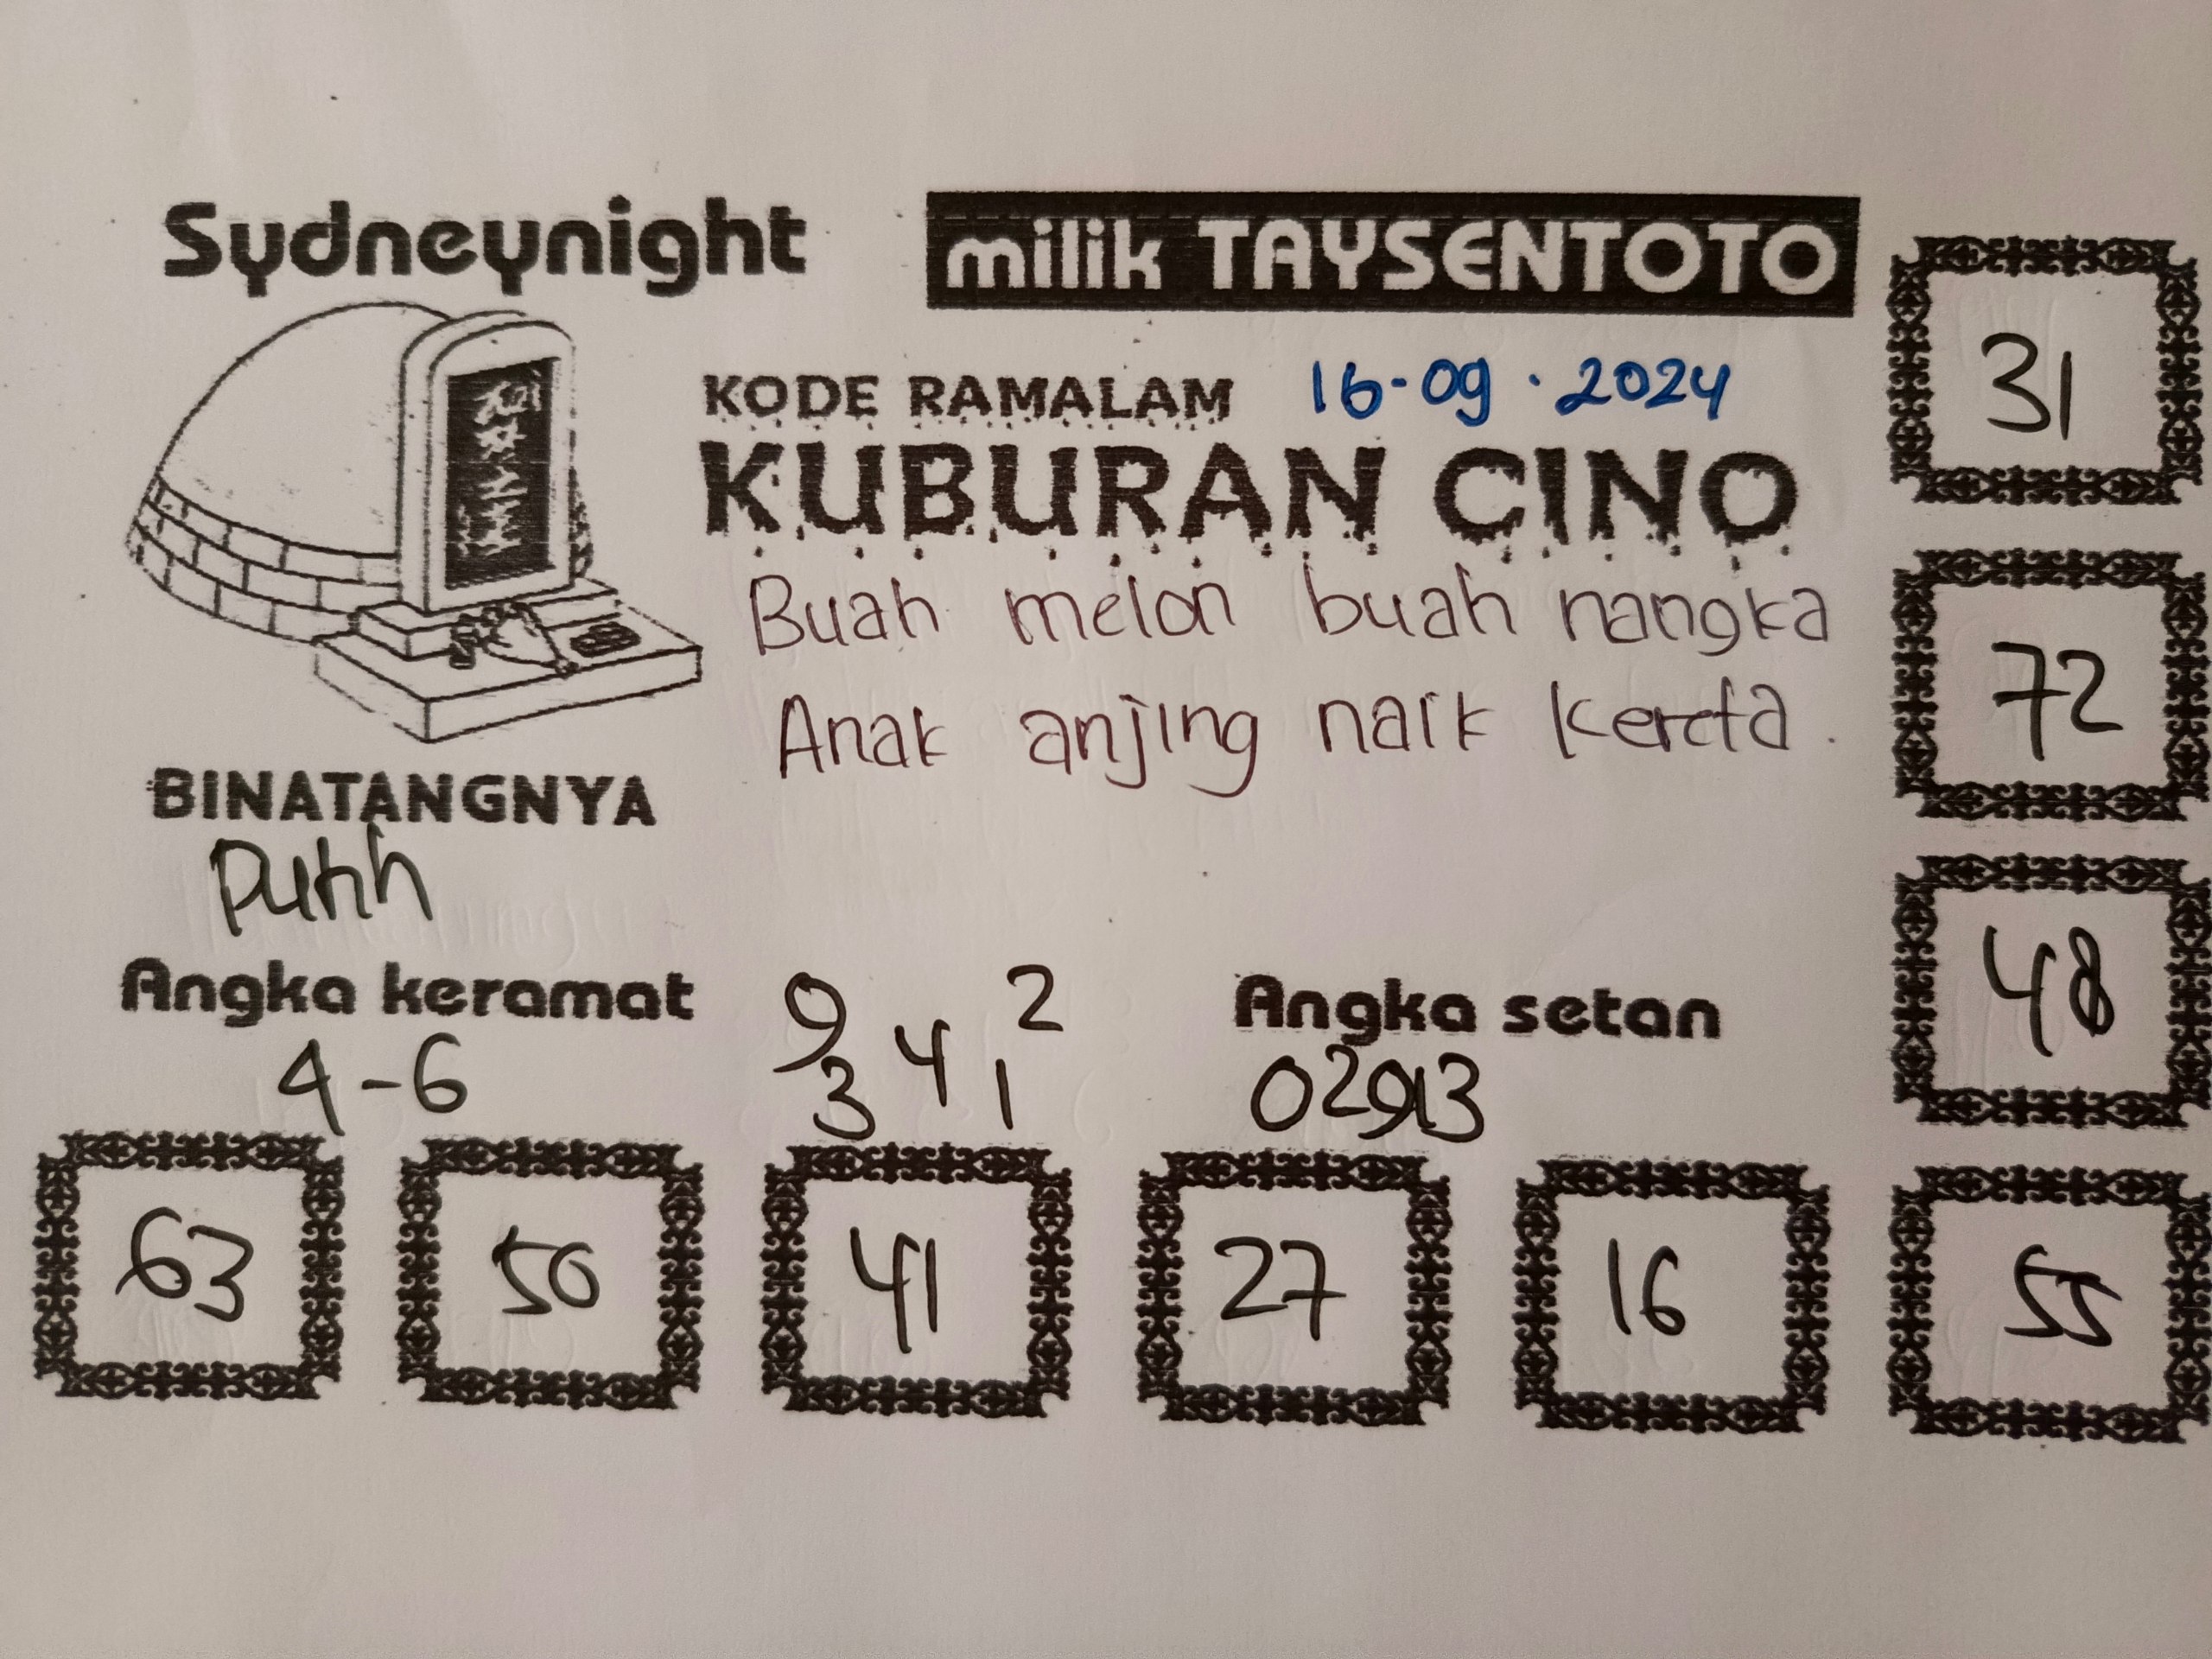 Sydneynight
milik TAYSENTOTO
KODE RAMALAM 16-09-2024
KUBURAN CINO
Buah melon buah nangka
Anak anjing naik kereta.
BINATANGNYA
Putih
Angka keramat
4-6
9 4 2
3 1
Angka setan
02913
31
72
48
63 50 41 27 16 55